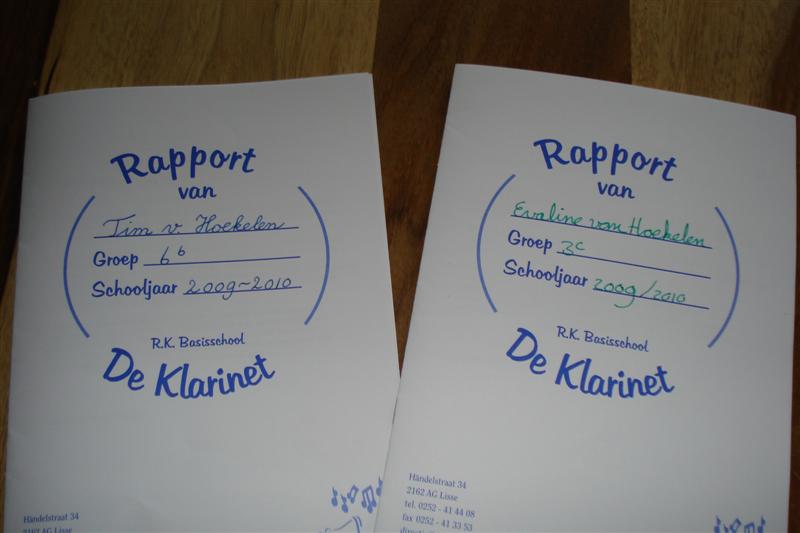 Rapport
van
Tim v Hoekelen
Groep 6b
Schooljaar 2009-2010
R.K. Basisschool
De Klarinet
Händelstraat 34
2162 AG Lisse
Rapport
van
Evaline van Hoekelen
Groep 3c
Schooljaar 2009/2010
R.K. Basisschool
De Klarinet
Händelstraat 34
2162 AG Lisse
tel. 0252 - 41 44 08
fax 0252 - 41 33 53